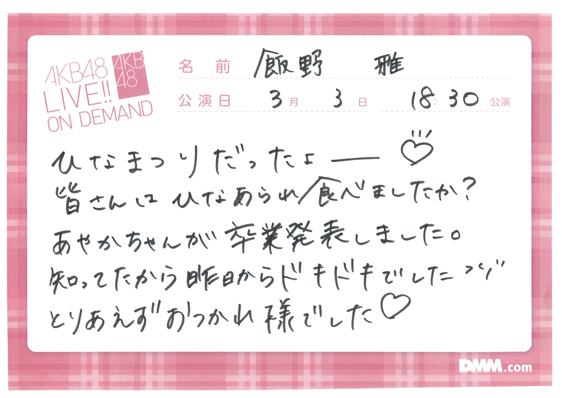 AKB48
LIVE!!
ON DEMAND
AKB
48
名前 飯野 雅
公演日 3月 3日 18:30 公演
ひなまつりだったよー♡
皆さんはひなあられ食べましたか?
あやかちゃんが卒業発表しました。
知ってたから昨日からドキドキでした
とりあえずおつかれ様でした♡
DMM.com